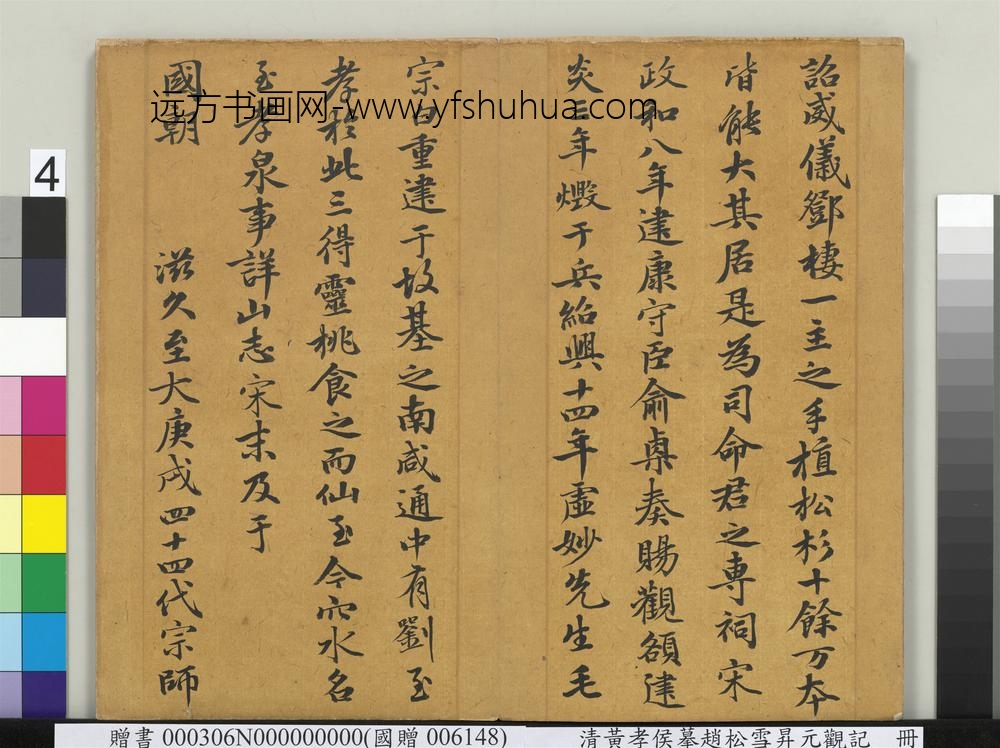 詔威儀鄧棲一主之手植松杉十餘万本
皆能大其居是為司命君之專祠宋
政和八年建康守臣俞㮚奏賜觀額建
炎三年燬于兵紹興十四年虛妙先生毛
宗白重建于故基之南咸通中有劉至
孝於此三得靈桃食之而仙至今穴水名
至孝泉事詳山志宋末及于
國朝 滋久至大庚戌四十四代宗師
远方书画网-www.yfshuhua.com
4
贈書 000306N000000000(國贈 006148)
清黃孝侯摹趙松雪昇元觀記 冊